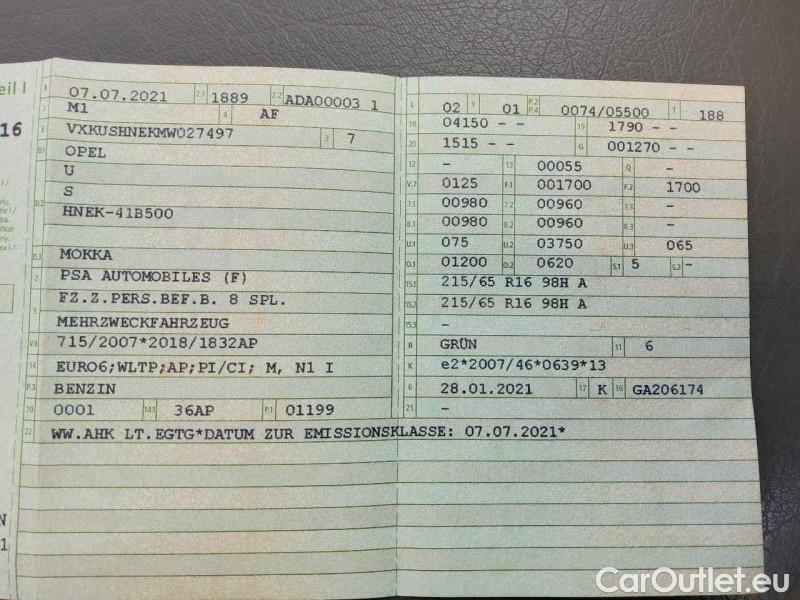 eil I
16
B 07.07.2021 2.1 1889 2.2 ADA00003 1
J M1 4 AF
E VXKUSHNEKMW027497 3 7
D.1 OPEL
U
S
D.2 HNEK-41B500
D.3 MOKKA
2 PSA AUTOMOBILES (F)
5 FZ.Z.PERS.BEF.B. 8 SPL.
MEHRZWECKFAHRZEUG
V.9 715/2007*2018/1832AP
14 EURO6;WLTP;AP;PI/CI; M, N1 I
P.3 BENZIN
10 0001 14.1 36AP P.1 01199
22 WW.AHK LT.EGTG*DATUM ZUR EMISSIONSKLASSE: 07.07.2021*
L 02 9 01 P.2 P.4 0074/05500 T 188
18 04150 - - 19 1790 - -
20 1515 - - G 001270 - -
12 - 13 00055 Q -
V.7 0125 F.1 001700 F.2 1700
7.1 00980 7.2 00960 7.3 -
8.1 00980 8.2 00960 8.3 -
U.1 075 U.2 03750 U.3 065
O.1 01200 O.2 0620 S.1 5 S.2 -
15.1 215/65 R16 98H A
15.2 215/65 R16 98H A
15.3 -
R GRÜN 11 6
K e2*2007/46*0639*13
6 28.01.2021 17 K 16 GA206174
21 -
N
1
CarOutlet.eu